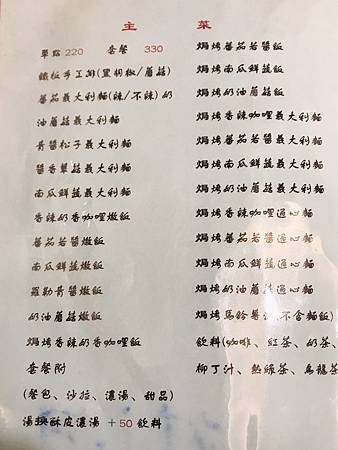 主 菜
單點 220 套餐 330
鐵板手工排(黑胡椒/蘑菇)
蕃茄義大利麵(辣/不辣)奶
油蘑菇義大利麵
青醬松子義大利麵
醬香草菇義大利麵
南瓜鮮蔬義大利麵
香辣奶香咖哩燉飯
蕃茄茄醬燉飯
南瓜鮮蔬燉飯
羅勒青醬燉飯
奶油蘑菇燉飯
焗烤香辣奶香咖哩飯
套餐附
(餐包、沙拉、濃湯、甜品)
湯換酥皮濃湯 +50 飲料
焗烤蕃茄茄醬飯
焗烤南瓜鮮蔬飯
焗烤奶油蘑菇飯
焗烤香辣咖哩義大利麵
焗烤蕃茄茄醬義大利麵
焗烤南瓜鮮蔬義大利麵
焗烤奶油蘑菇義大利麵
焗烤香辣奶香咖哩通心麵
焗烤蕃茄茄醬通心麵
焗烤南瓜鮮蔬通心麵
焗烤奶油蘑菇通心麵
焗烤馬鈴薯(不含麵飯)
飲料(咖啡、紅茶、奶茶、
柳丁汁、熱綠茶、烏龍茶